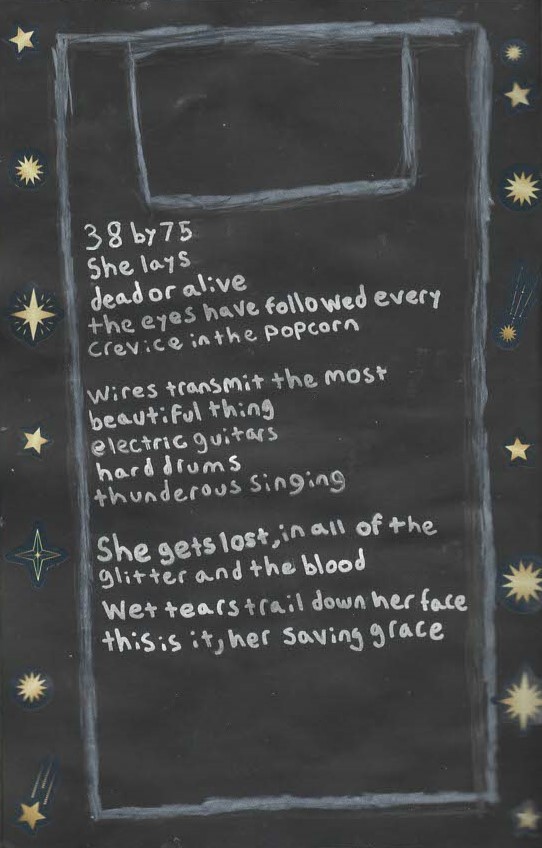 38 by 75
She lays
dead or alive
the eyes have followed every
crevice in the popcorn
wires transmit the most
beautiful thing
electric guitars
hard drums
thunderous singing
She gets lost, in all of the
glitter and the blood
Wet tears trail down her face
this is it, her saving grace